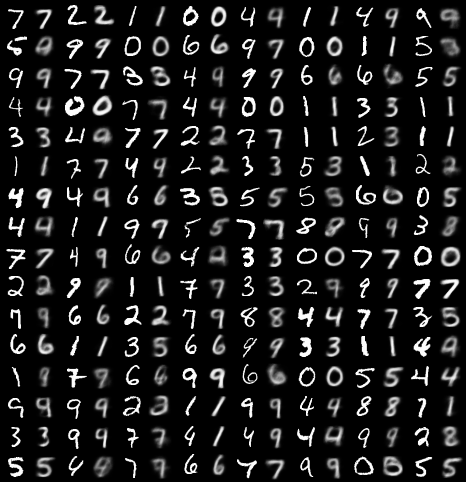 7 7 2 2 1 1 0 0 4 9 1 1 4 9 9 9
5 9 9 0 0 6 6 9 7 0 0 1 1 5
9 9 7 7 3 3 4 9 9 9 6 6 6 6 5 5
4 4 0 0 7 7 4 4 0 0 1 1 3 3 1 1
3 3 4 9 7 7 2 2 7 7 1 1 2 3 1 1
1 1 7 7 4 9 2 2 3 3 5 3 1 1 2 2
4 9 4 9 6 6 3 5 5 5 5 5 6 0 0 5
4 4 1 1 9 9 5 5 7 7 8 8 9 9 3 8
7 7 4 9 6 6 4 3 3 0 0 7 7 0 0
2 2 9 9 1 1 7 9 3 3 2 9 9 9 7 7
7 9 6 6 2 2 7 9 8 8 4 4 7 7 3 5
6 6 1 1 3 5 6 6 9 9 3 3 1 1 4 9
1 9 7 9 6 6 9 9 6 6 0 0 5 5 4 4
9 9 9 9 2 2 1 1 9 9 4 4 8 8 7 1
3 3 9 9 7 7 9 1 4 9 4 4 9 9 2 8
5 5 4 7 9 6 6 7 7 9 9 0 5 5